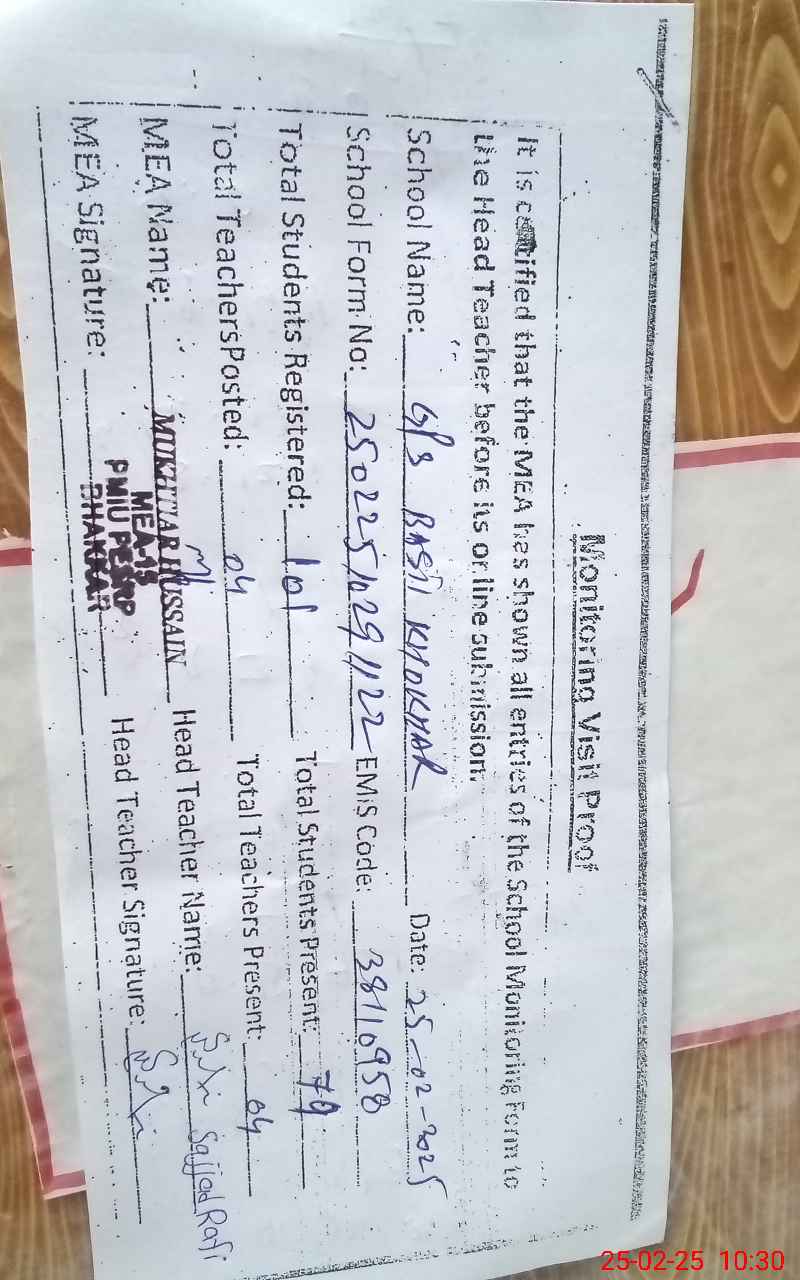 Monitoring Visit Proof
It is certified that the MEA has shown all entries of the School Monitoring Form to
the Head Teacher before its on line submission.
School Name: GPS BASTI KHOKHAR Date: 25-02-2025
School Form No: 25022510291122 EMIS Code: 38110958
Total Students Registered: 101 Total Students Present: 79
Total Teachers Posted: 04 Total Teachers Present: 04
MEA Name: MUKHTIAR HUSSAIN Head Teacher Name: Sajjad Rafi
MEA-15
PMIU PESRP
BHAKKAR
MEA Signature: Head Teacher Signature:
25-02-25 10:30